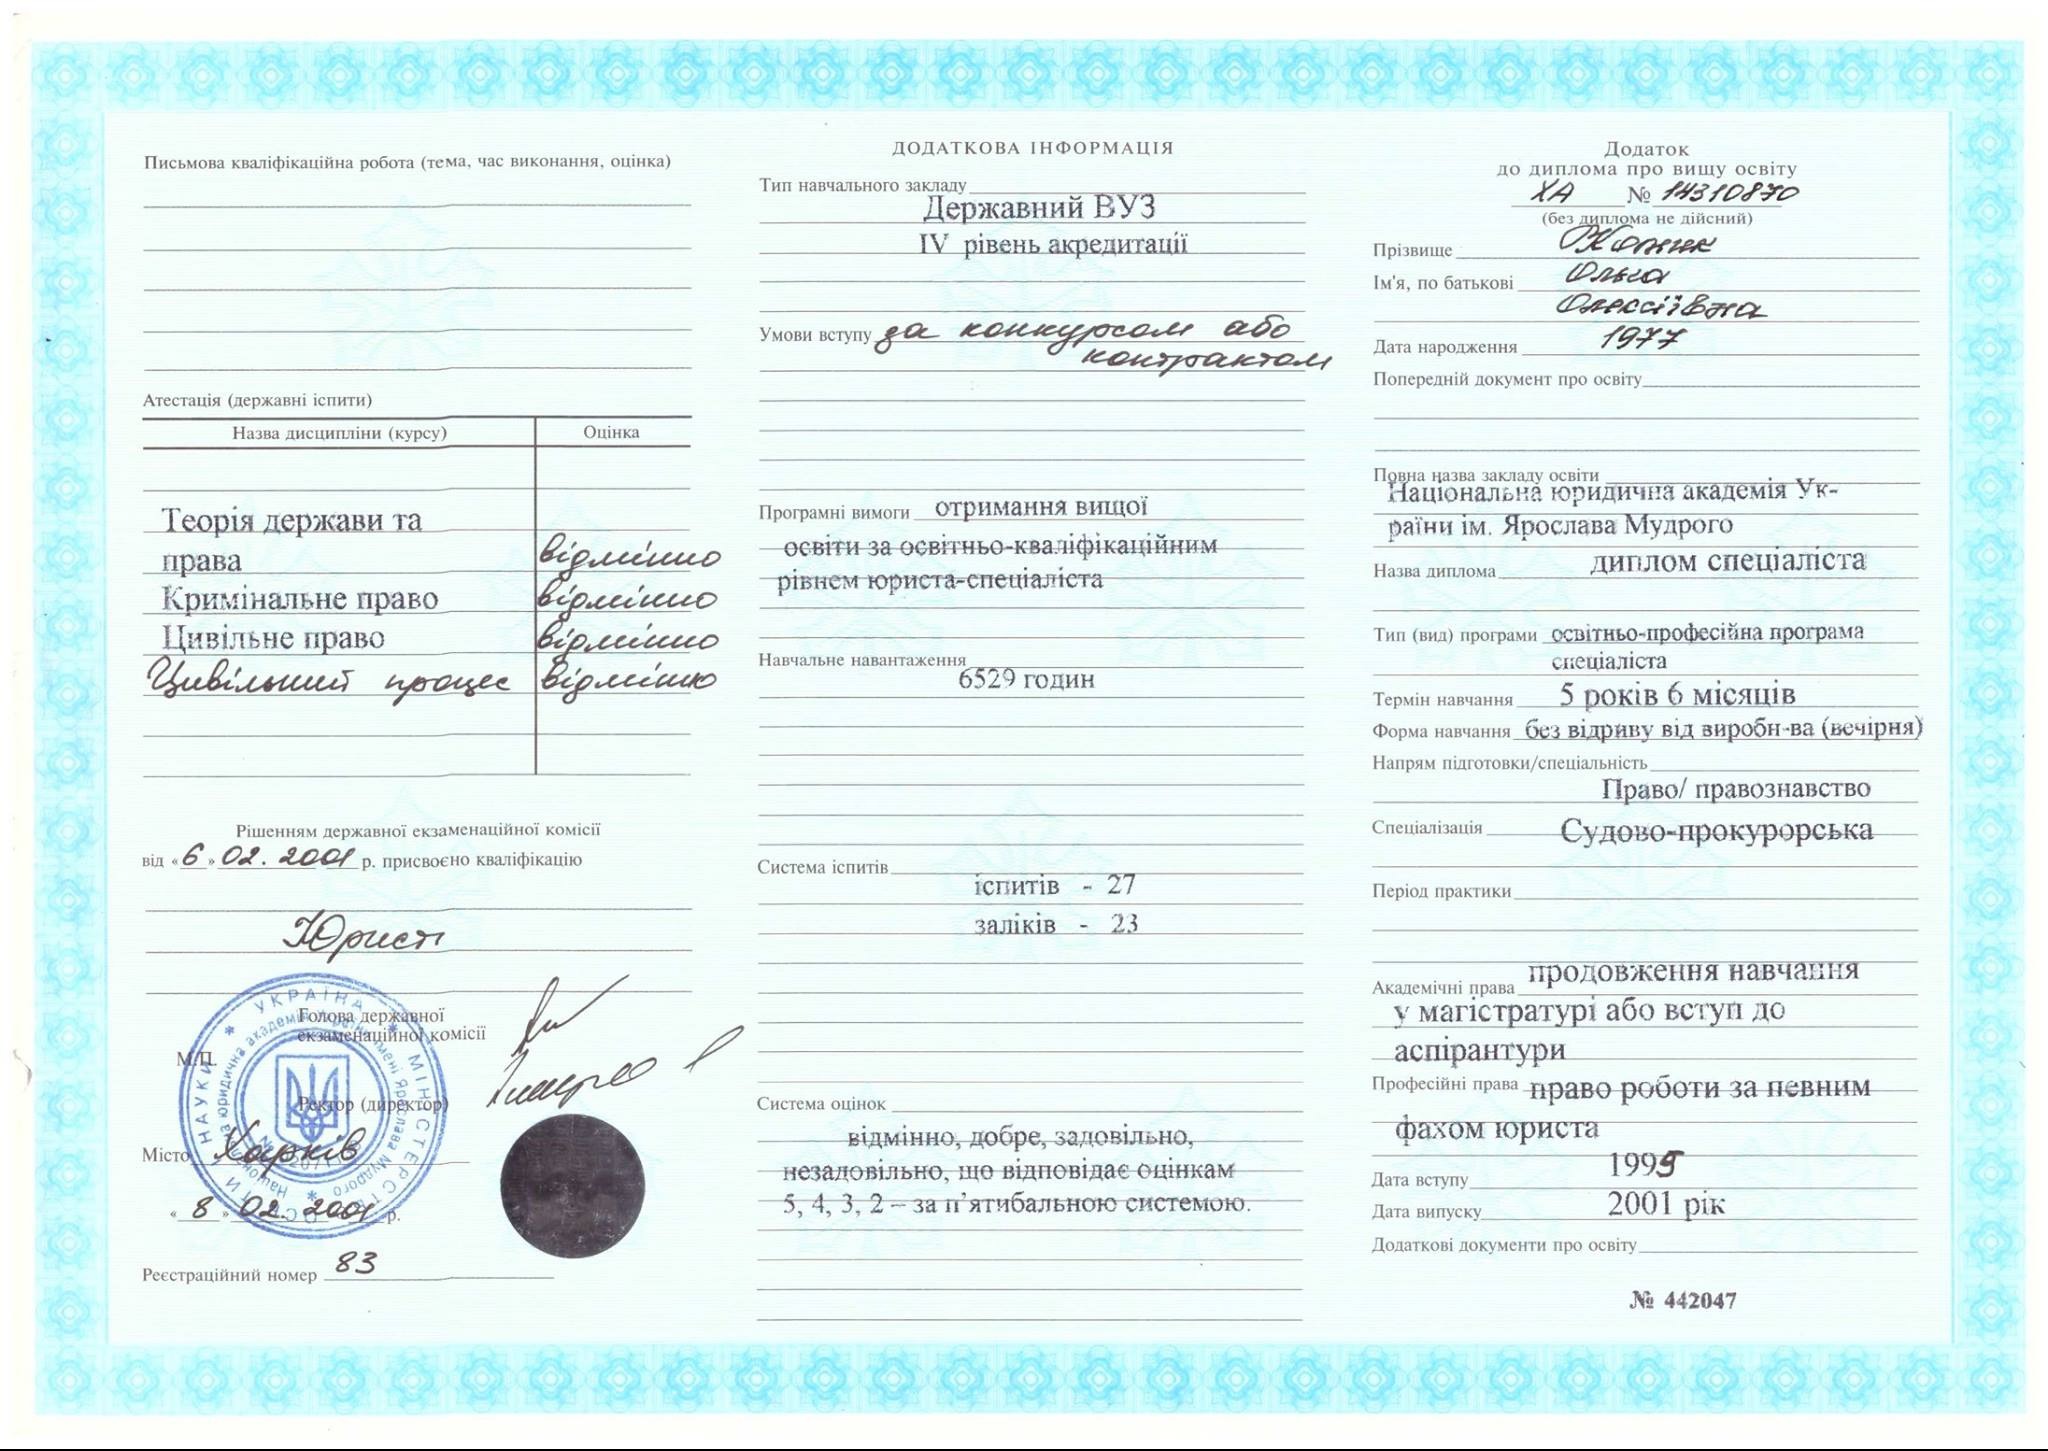 Письмова кваліфікаційна робота (тема, час виконання, оцінка)
Атестація (державні іспити)
Назва дисципліни (курсу) Оцінка
Теорія держави та
права відмінно
Кримінальне право відмінно
Цивільне право відмінно
Цивільний процес відмінно
Рішенням державної екзаменаційної комісії
від «6» 02. 2001 р. присвоєно кваліфікацію
Юрист
Голова державної
екзаменаційної комісії
М.П.
Ректор (директор)
Місто Харків
«8» 02. 2001 р.
Реєстраційний номер 83
УКРАЇНА * МІНІСТЕРСТВО ОСВІТИ І НАУКИ *
Національна юридична академія України імені Ярослава Мудрого *
ДОДАТКОВА ІНФОРМАЦІЯ
Тип навчального закладу
Державний ВУЗ
IV рівень акредитації
Умови вступу за конкурсом або
контрактом
Програмні вимоги отримання вищої
освіти за освітньо-кваліфікаційним
рівнем юриста-спеціаліста
Навчальне навантаження
6529 годин
Система іспитів
іспитів - 27
заліків - 23
Система оцінок
відмінно, добре, задовільно,
незадовільно, що відповідає оцінкам
5, 4, 3, 2 – за п'ятибальною системою.
Додаток
до диплома про вищу освіту
ХА № 14310870
(без диплома не дійсний)
Прізвище
Ім'я, по батькові Ольга
Олексіївна
Дата народження 1977
Попередній документ про освіту
Повна назва закладу освіти
Національна юридична академія Ук-
раїни ім. Ярослава Мудрого
Назва диплома диплом спеціаліста
Тип (вид) програми освітньо-професійна програма
спеціаліста
Термін навчання 5 років 6 місяців
Форма навчання без відриву від виробн-ва (вечірня)
Напрям підготовки/спеціальність
Право/ правознавство
Спеціалізація Судово-прокурорська
Період практики
Академічні права продовження навчання
у магістратурі або вступ до
аспірантури
Професійні права право роботи за певним
фахом юриста
Дата вступу 1995
Дата випуску 2001 рік
Додаткові документи про освіту
№ 442047